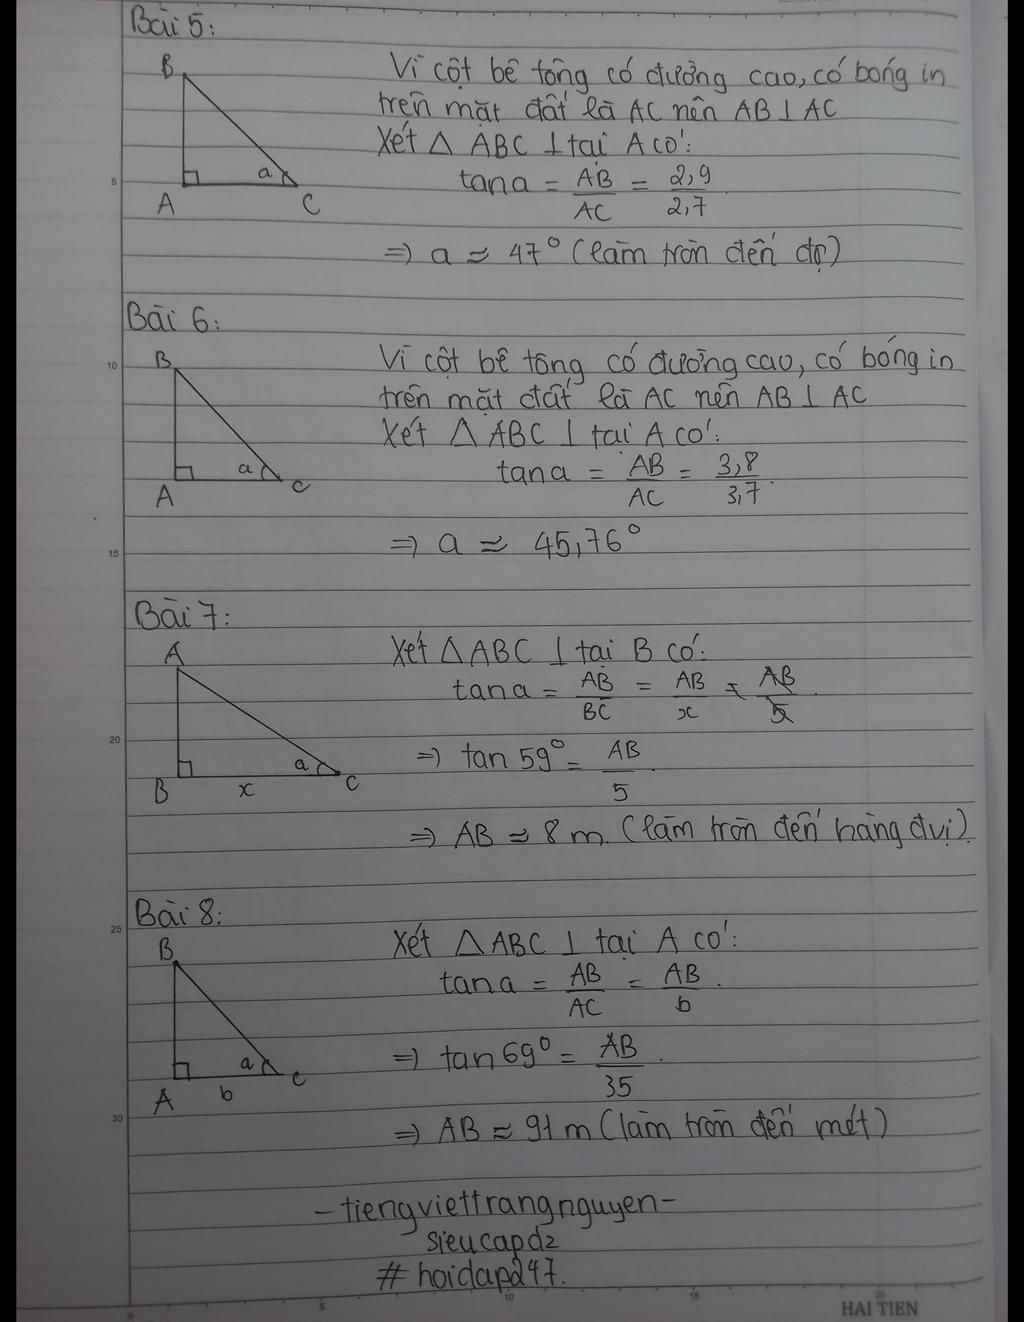 Bài 5:
B
A
a
C
Vì cột bê tông có đường cao, có bóng in
trên mặt đất là AC nên AB ⊥ AC
Xét △ ABC ⊥ tại A có:
tan a = AB/AC = 2,9/2,7
=> a ≈ 47° (làm tròn đến độ)
Bài 6:
B
A
a
C
Vì cột bê tông có đường cao, có bóng in
trên mặt đất là AC nên AB ⊥ AC
Xét △ ABC ⊥ tại A có:
tan a = AB/AC = 3,8/3,7
=> a ≈ 45,76°
Bài 7:
A
B
x
a
C
Xét △ ABC ⊥ tại B có:
tan a = AB/BC = AB/x = AB/5
=> tan 59° = AB/5
=> AB ≈ 8 m. (làm tròn đến hàng đvị)
Bài 8:
B
A
b
a
C
Xét △ ABC ⊥ tại A có:
tan a = AB/AC = AB/b.
=> tan 69° = AB/35.
=> AB ≈ 91 m (làm tròn đến mét)
- tiengviettrangnguyen -
sieucapdz
# hoidap247.
5
10
15
20
25
30
0
5
10
15
20
HAI TIEN